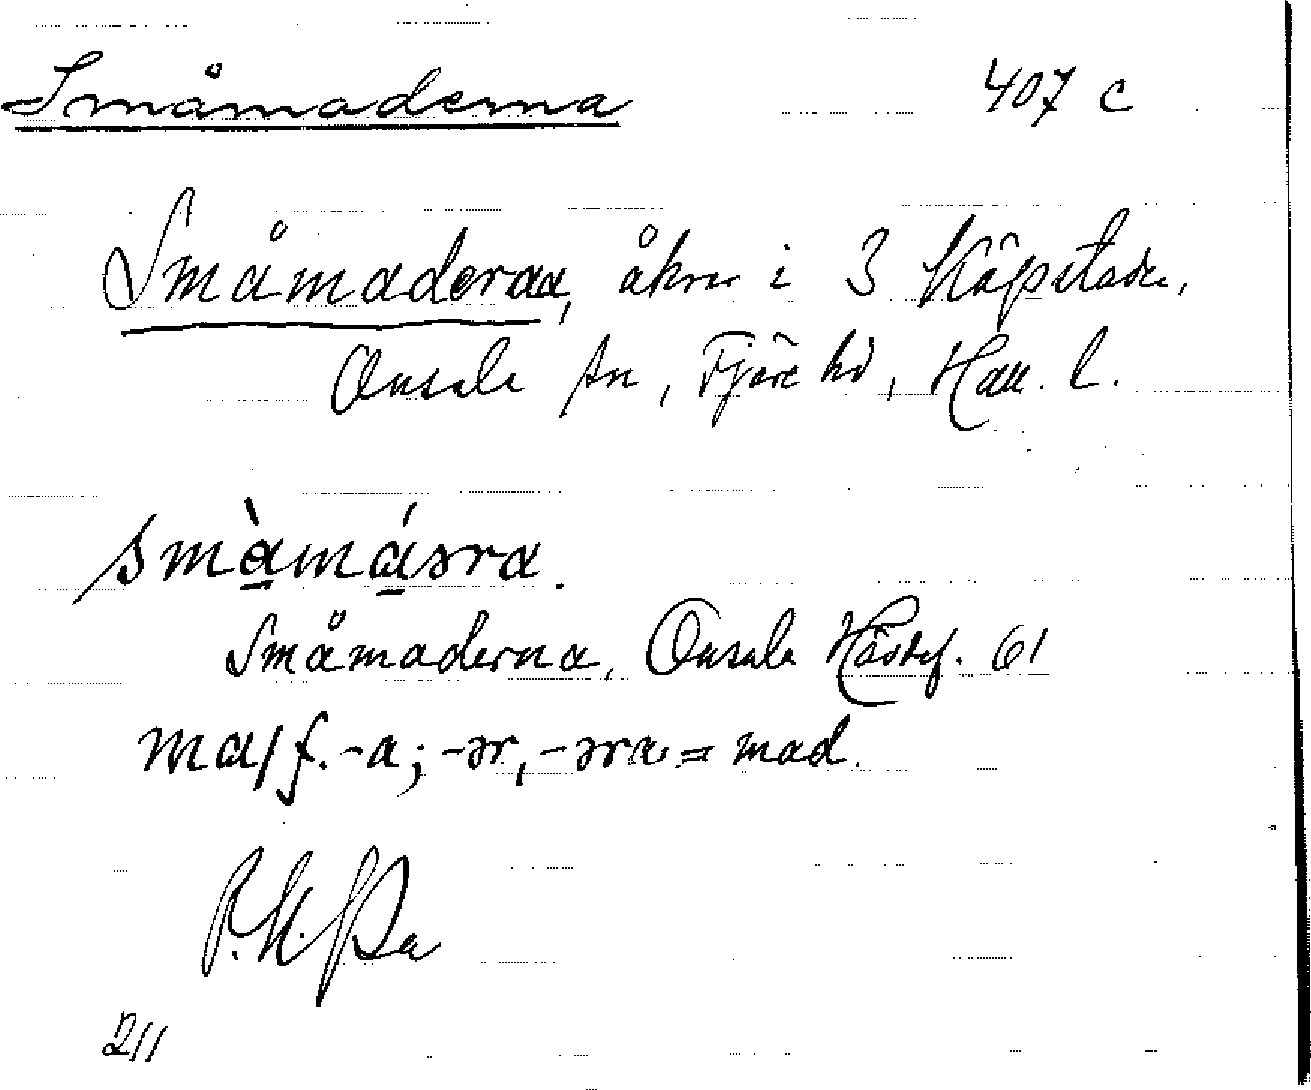 Småmaderna 407 c
Småmaderna, åkrar i 3 Köpstaden,
Onsala sn, Fjäre hd, Hall. l.
småmáəra.
Småmaderna, Onsala Hdskf. 61
ma/ f. -a; -ər, -əra = mad.
211